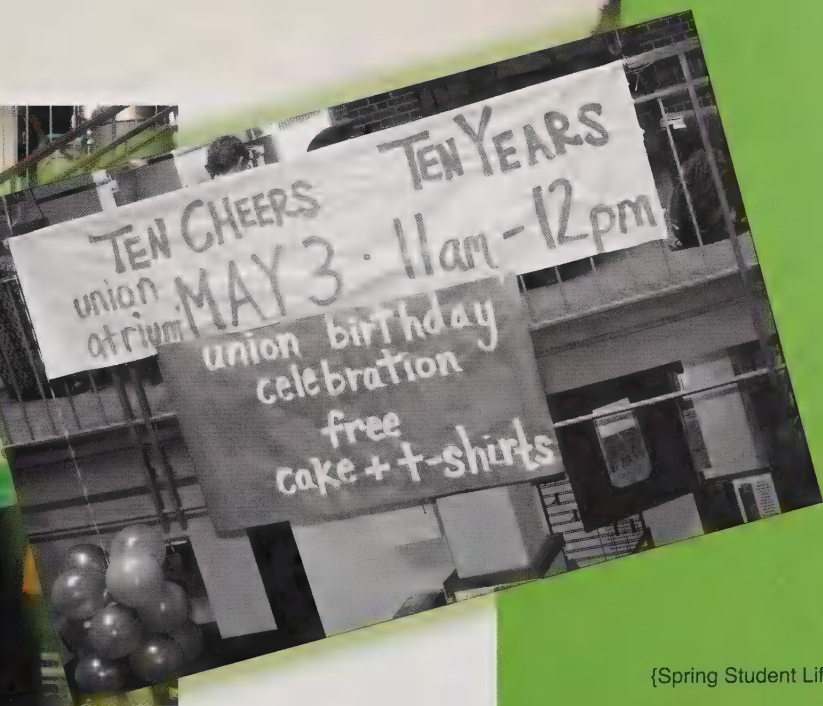 TEN CHEERS TEN YEARS
union atrium MAY 3 · 11am - 12pm
union birthday
celebration
free
cake + t-shirts
{Spring Student Lif